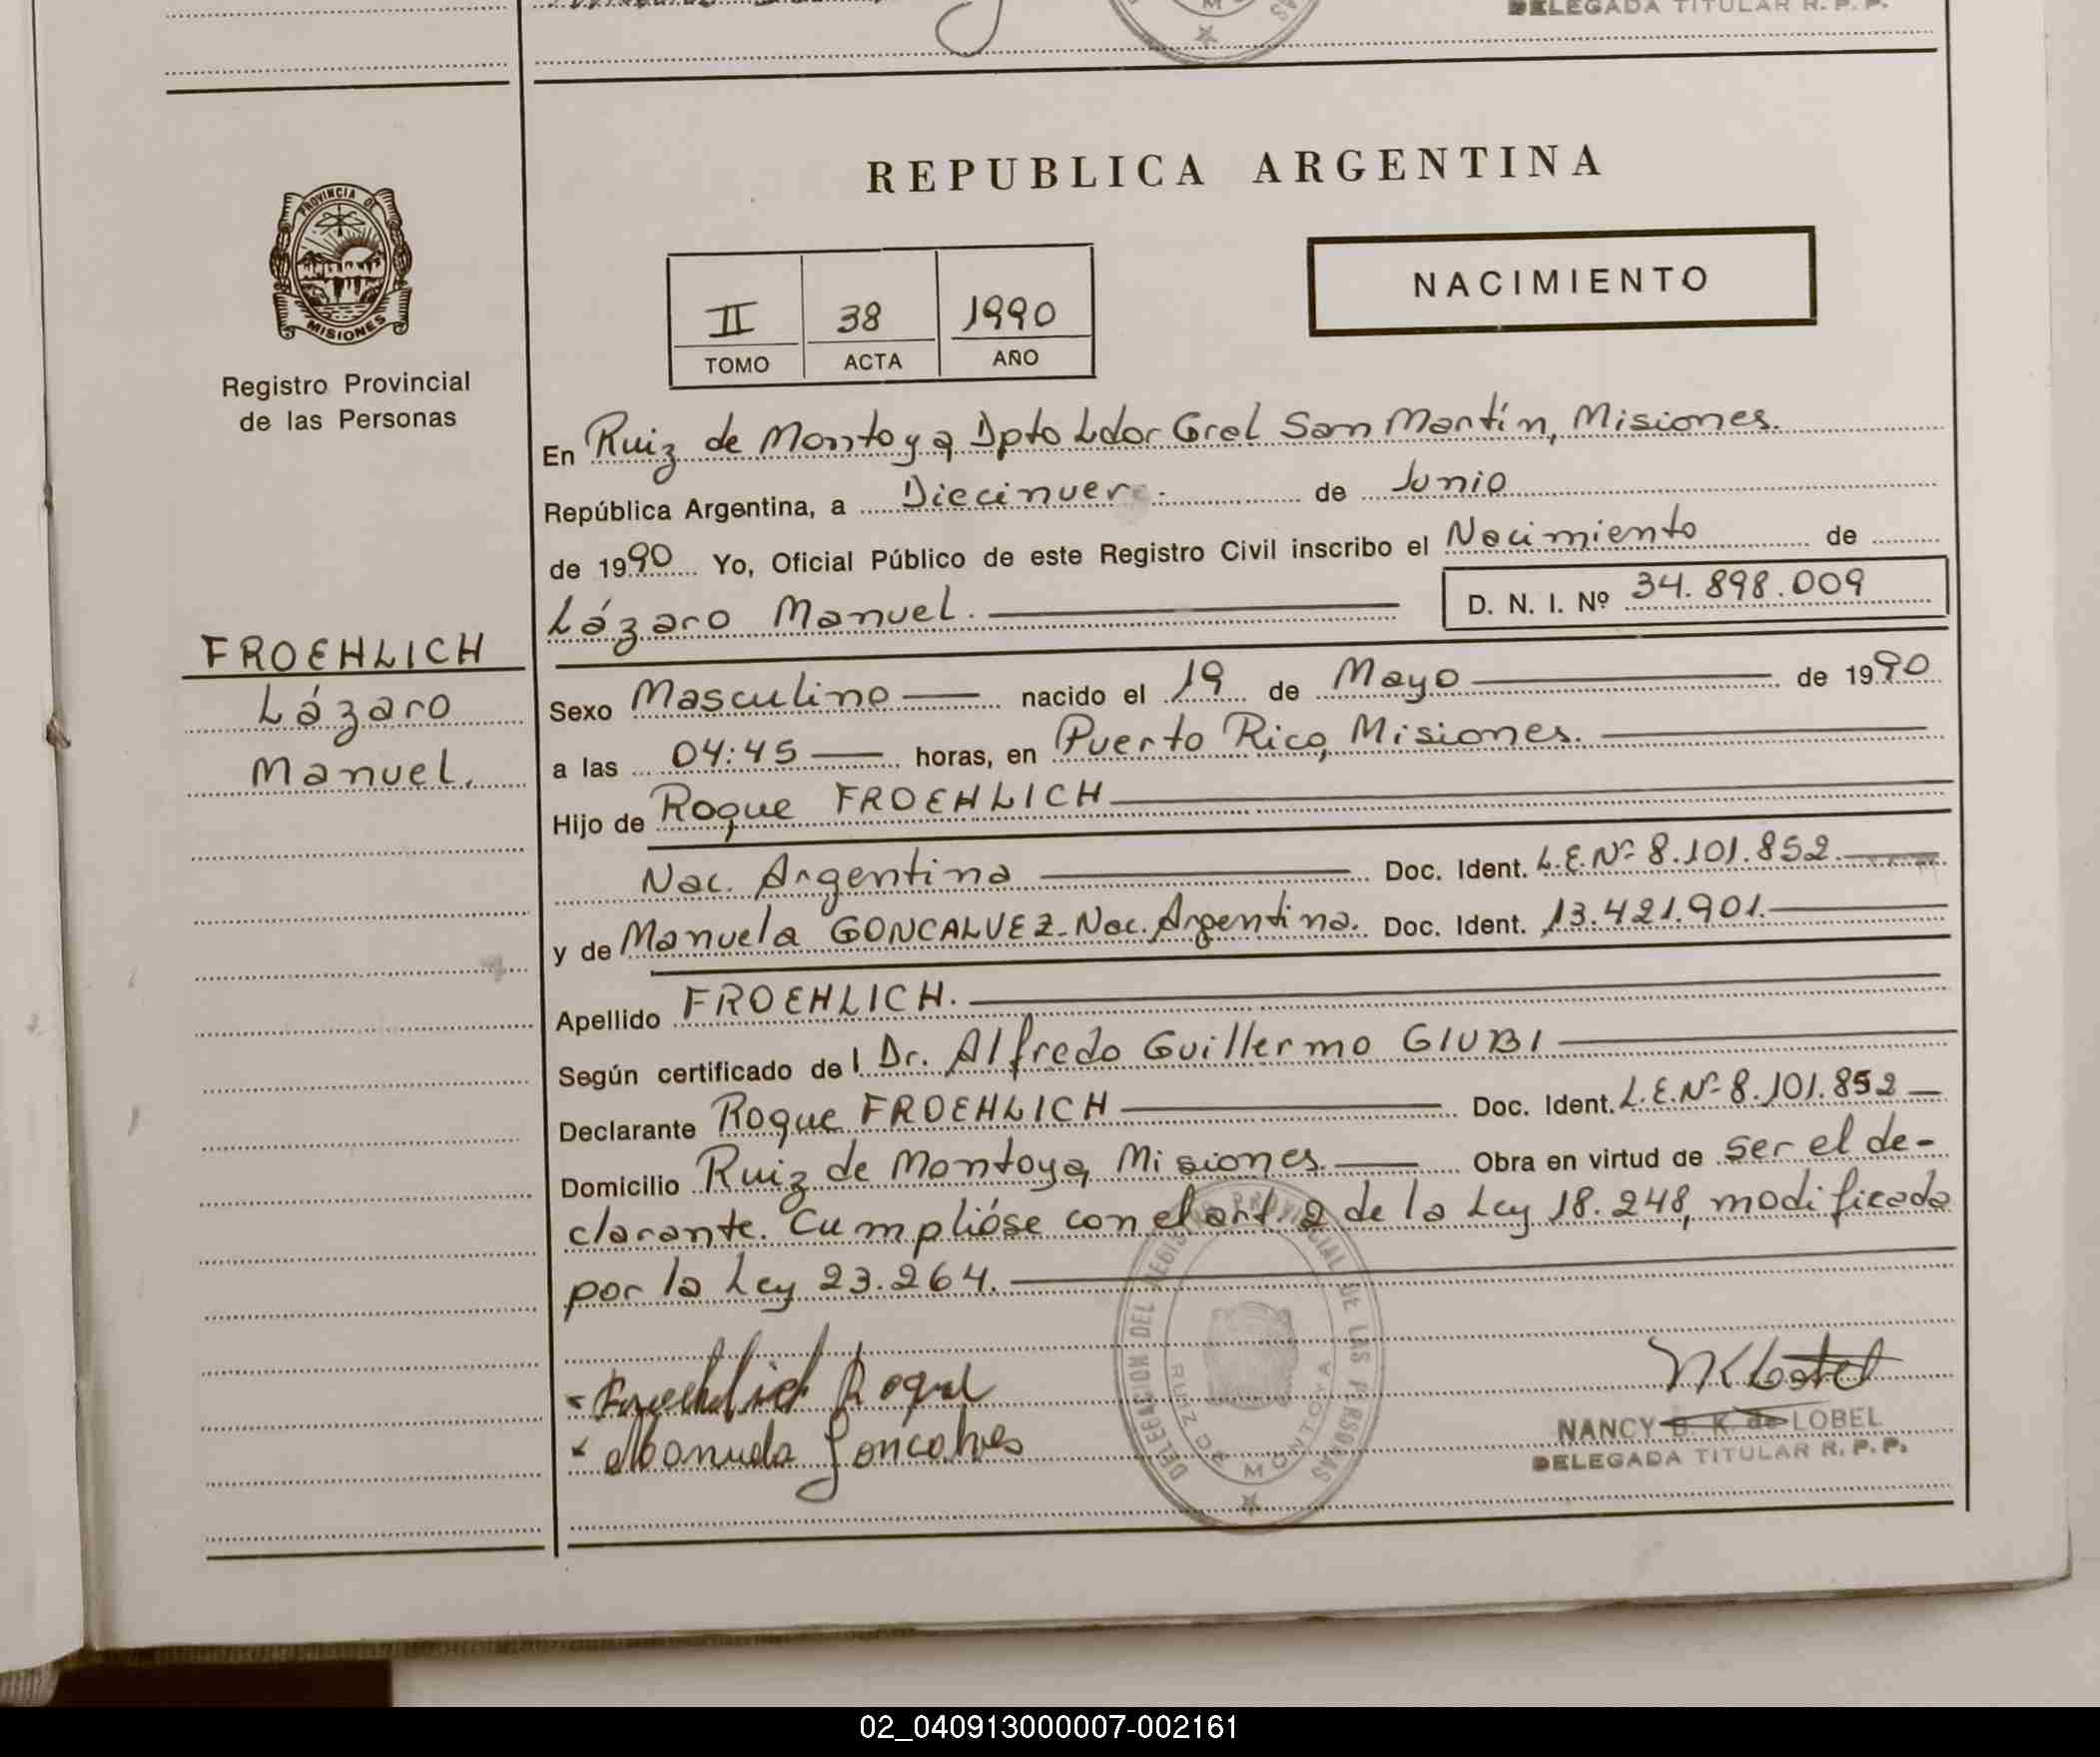 DELEGADA TITULAR R. P. P.
REPUBLICA ARGENTINA
PROVINCIA DE
MISIONES
Registro Provincial
de las Personas
II 38 1990
TOMO ACTA AÑO
NACIMIENTO
En Ruiz de Montoya Dpto Ldor Gral San Martín, Misiones.
República Argentina, a Diecinueve. de Junio
de 1990 Yo, Oficial Público de este Registro Civil inscribo el Nacimiento de
Lázaro Manuel.
D. N. I. Nº 34.898.009
FROEHLICH
Lázaro
Manuel.
Sexo Masculino nacido el 19 de Mayo de 1990
a las 04:45 horas, en Puerto Rico, Misiones.
Hijo de Roque FROEHLICH
Nac. Argentina Doc. Ident. L.E.Nº 8.101.852.
y de Manuela GONCALVEZ-Nac. Argentina. Doc. Ident. 13.421.901.
Apellido FROEHLICH.
Según certificado del Dr. Alfredo Guillermo GIUBI
Declarante Roque FROEHLICH Doc. Ident. L.E.Nº 8.101.852
Domicilio Ruiz de Montoya, Misiones. Obra en virtud de ser el de-
clarante. Cumplióse con el art. 2 de la Ley 18.248, modificada
por la Ley 23.264.
Froehlich Roque
Manuela Goncalves
DELEGACION DEL REGISTRO PROVINCIAL DE LAS PERSONAS
RUIZ DE MONTOYA
NANCY B. K. de LOBEL
DELEGADA TITULAR R. P. P.
02_040913000007-002161